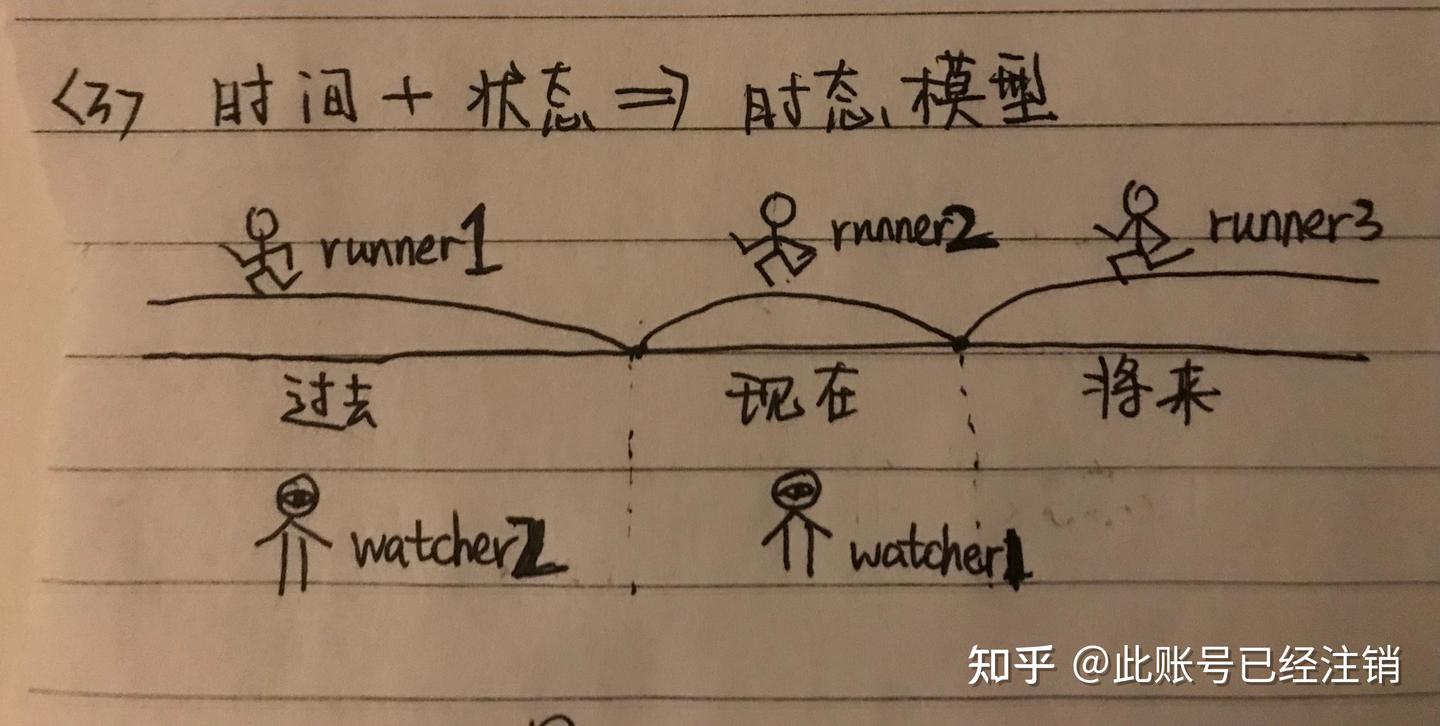 <3> 时间 + 状态 => 时态模型
runner1 runner2 runner3
过去 现在 将来
watcher2 watcher1
知乎 @此账号已经注销